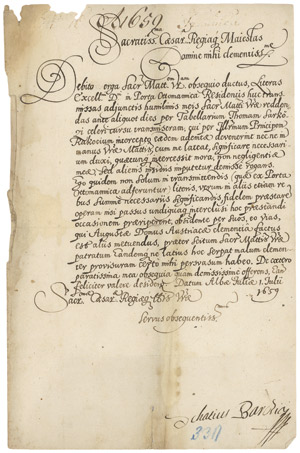 1659
Sacratissª Cæsar. Regiaq Maiestas
Domine mihi clementissᵉ
Debito erga Sacr. Matt. Vram obsequio ductus, Literas
Excellᵐⁱ D. in Porta Ottomanica Residentis huc trans-
missas adjunctis humilimis meis Sacr. Mattⁱ Vræ redden-
das ante aliquot dies per Tabellarium Thomam Sarko-
zi celeri cursu transmiseram, cui per Illmum Principem
Rakocium intercepto eædem adventæ, devenerunt nec ne in
manus Vræ Mattis, cum me lateat, significare necessari-
um duxi, quatenus intercessit mora, non negligentiæ
meæ, sed alienis invidiis imputetur demisse rogans.
Ego quidem non solum in transmittendis quæ ex Porta
Ottomanica adferuntur literis, verum in aliis etiam re-
bus summe necessariis significandis, fidelem præstare
operam
passus undiquaq interclusi hoc præsertim
occasionem præripient, obsidente per suos, eo vias,
qui Augustæ Domus Austriacæ clementia factus
est aliis metuendus, præter scitum Sacr. Mattis Vræ
patratum tandem ne latius hoc serpat malum clemen-
ter provisuram certo mihi persvasum habeo. De cætero
paratissima, mea obsequia quam demississime offerens, Eand
feliciter valere desidero. Datum Albæ Juliæ 1. Julii
1659
Sacr. Cæsar. Regiæq Mattis Vræ
Servus obsequentiss.
Bar
339